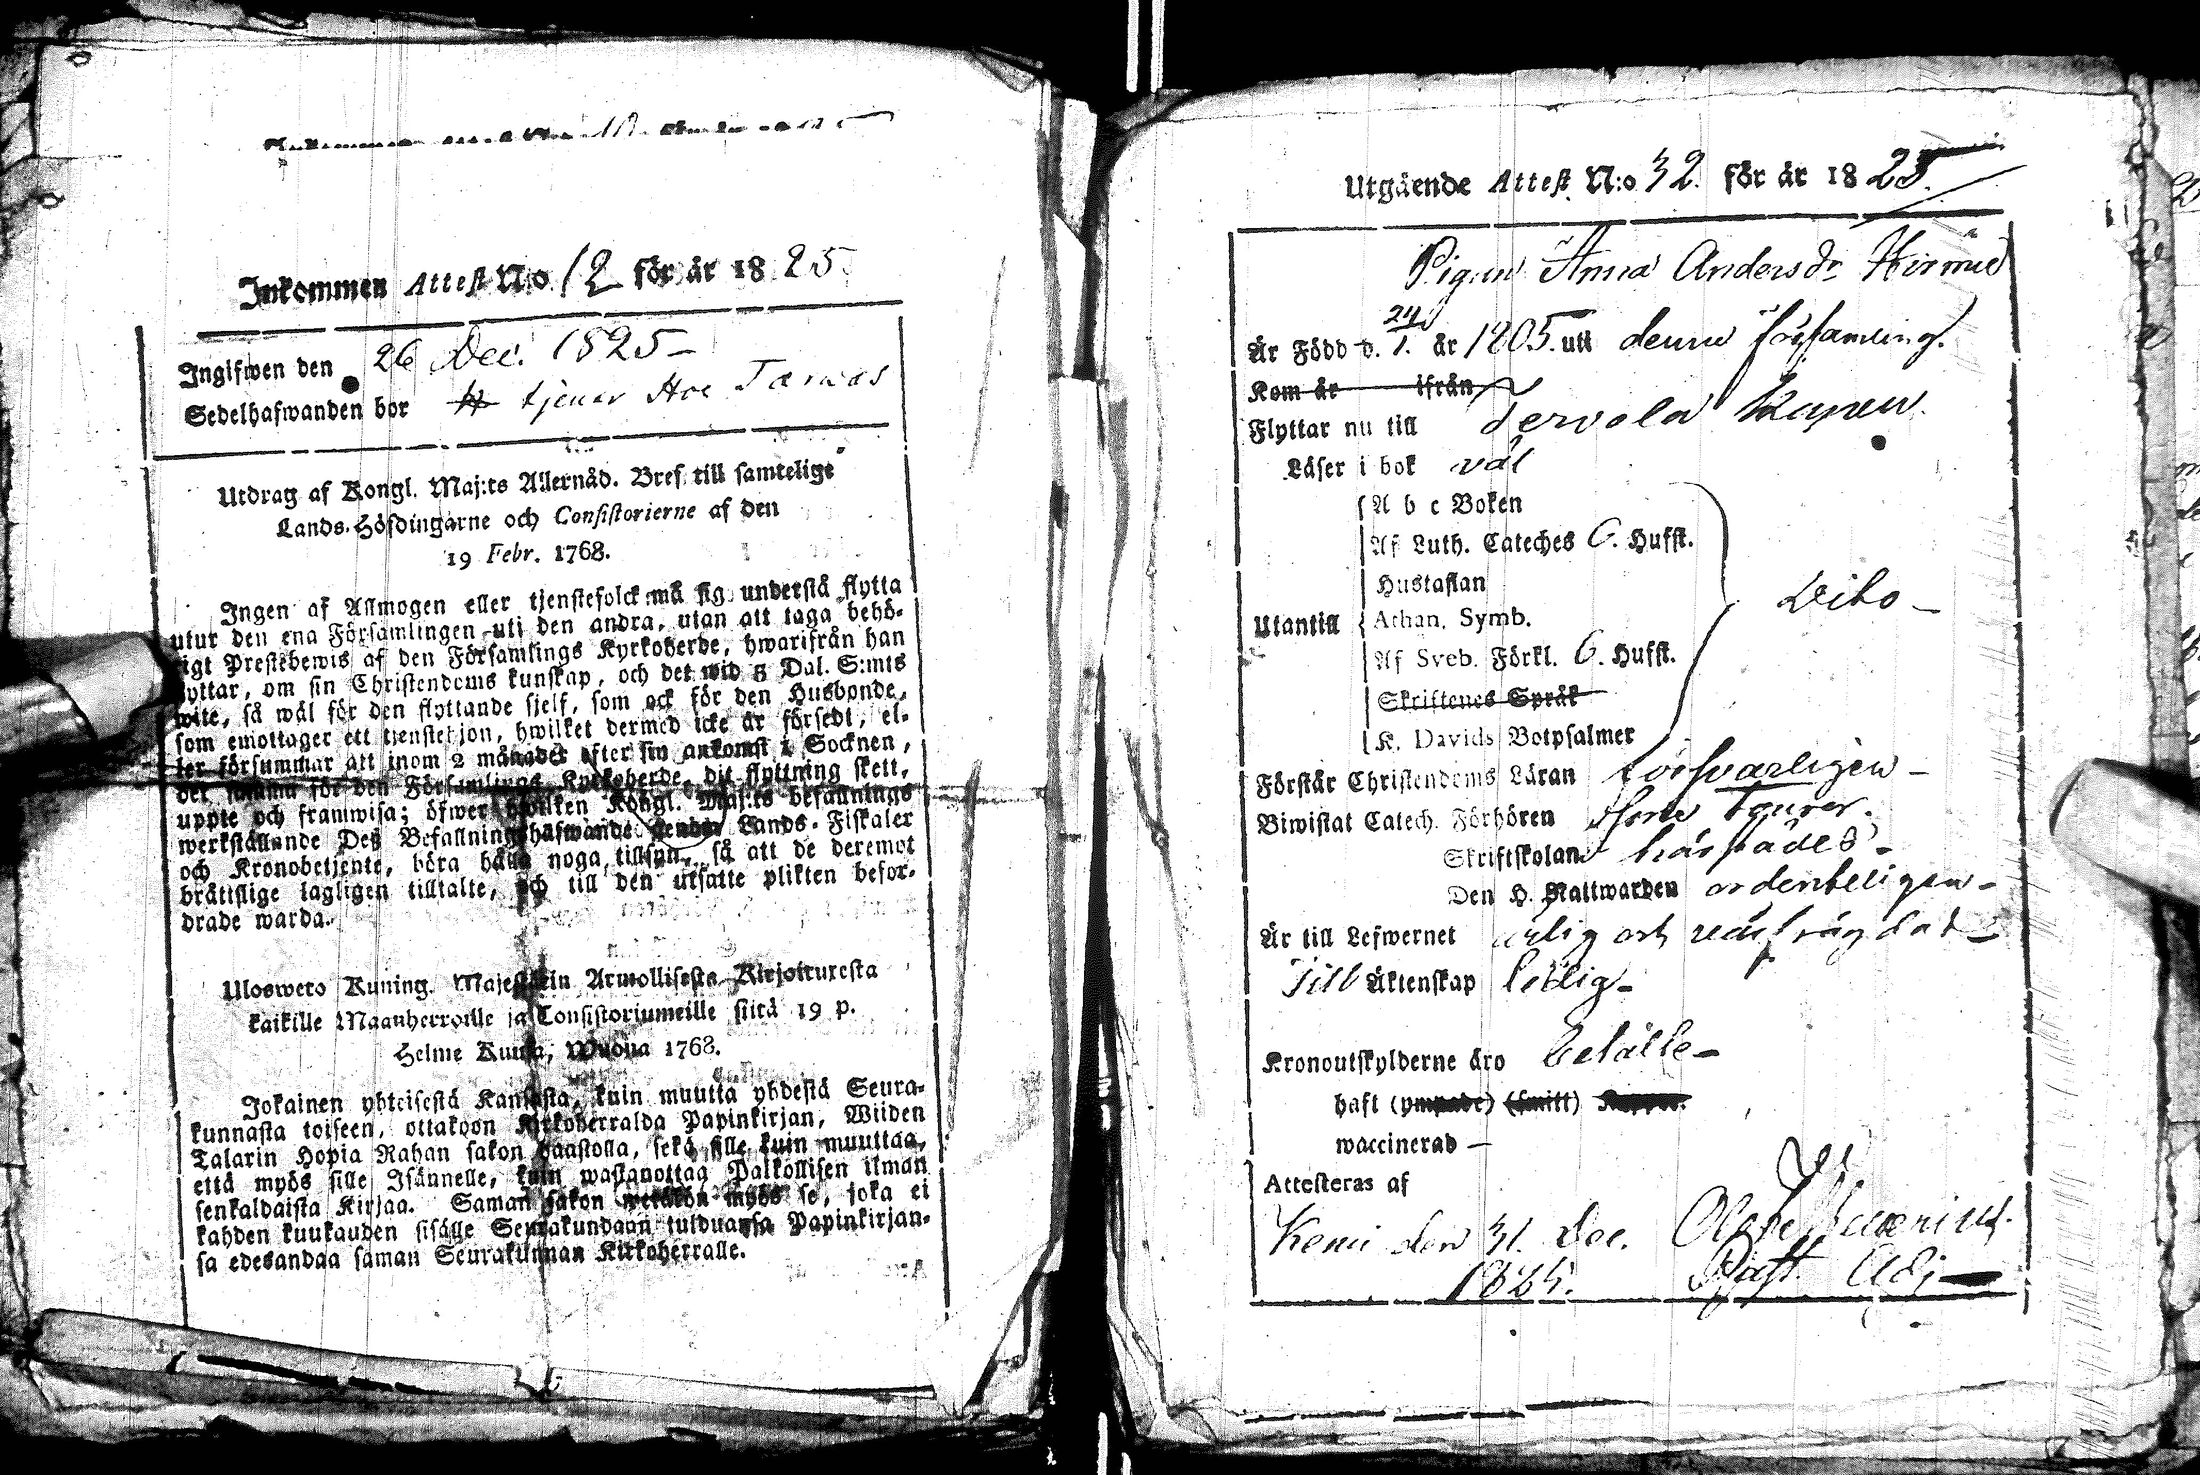 Inkommen Attest N:o 12 för år 1825.
Ingifwen den 26 Dec. 1825 –
Sedelhafwanden bor tjenar Hos
Utdrag af Kongl. Maj:ts Allernåd. Bref till samtelige
Lands-Höfdingarne och Consistorierne af den
19 Febr. 1768.
Ingen af Allmogen eller tjenstefolck må sig understå flytta
utur den ena Församlingen uti den andra, utan att taga behö-
rigt Prestebewis af den Församlings Kyrkoherde, hwarifrån han
flyttar, om sin Christendoms kunskap, och det wid 5 Dal. S:mts
wite, så wäl för den flyttande sjelf, som ock för den Husbonde,
som emottager ett tjenstehjon, hwilket dermed icke är försedt, el-
ler försummar att inom 2 månader efter sin ankomst i Socknen,
det samma för den Församlings Kyrkoherde, dit flyttning skett,
uppte och framwisa; öfwer hwilken Kongl. Maj:ts befallnings
werkställande Deß Befallningshafwande Lands-Fiskaler
och Kronobetjente, böra hålla noga tillsyn, så att de deremot
brätislige lagligen tilltalte, och till den utsatte plikten befor-
drade warda.
Ulosweto Kuning. Majestetin Armollisesta Kirjoituxesta
kaikille Maanherroille ja Consistoriumeille siitä 19 p.
Helme Kuusa, Wuona 1768.
Jokainen yhteisestä Kansasta, kuin muutta yhdestä Seura-
kunnasta toiseen, ottakoon Kirkoherralda Papinkirjan, Wiiden
Talarin Hopia Rahan sakon haastolla, sekä sille kuin muuttaa,
että myös sille Isännelle, kuin wastanottaa Palkollisen ilman
senkaldaista Kirjaa. Saman sakon wetäkön myös se, joka ei
kahden kuukauden sisälle Seurakundaan tulduansa Papinkirjan-
sa edesandaa saman Seurakunnan Kirkoherralle.
Utgående Attest N:o 32. för år 1825.
Pigan Anna Andersdr
Är Född d. 24/1. år 1805. uti denna församling.
Kom år ifrån
Flyttar nu till Tervola Kapell.
Läser i bok väl
A b c Boken
Af Luth. Cateches 6. Hufst.
Hustaflan
Utantill Athan. Symb.
Dito –
Af Sveb. Förkl. 6. Hufst.
Skriftenes Språk
K. Davids Botpsalmer
Förstår Christendoms Läran försvarligen –
Biwistat Catech. Förhören
Skriftskolan härstädes –
Den H. Nattwarden ordenteligen –
Är till Lefwernet ärlig och
Till Äktenskap ledig –
Kronoutskylderne äro betalte –
haft (ympade) (smitt) Koppor.
waccinerad –
Attesteras af
Kemi den 31. Dec.
1825.
Past. Adj.